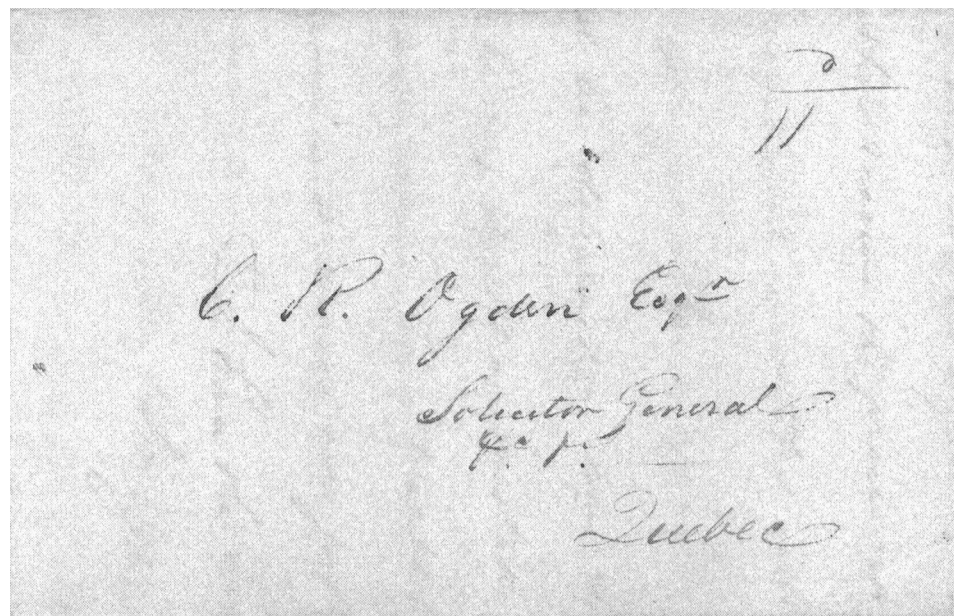 11
C. R. Ogden Esqr
Solicitor General
&c
Quebec